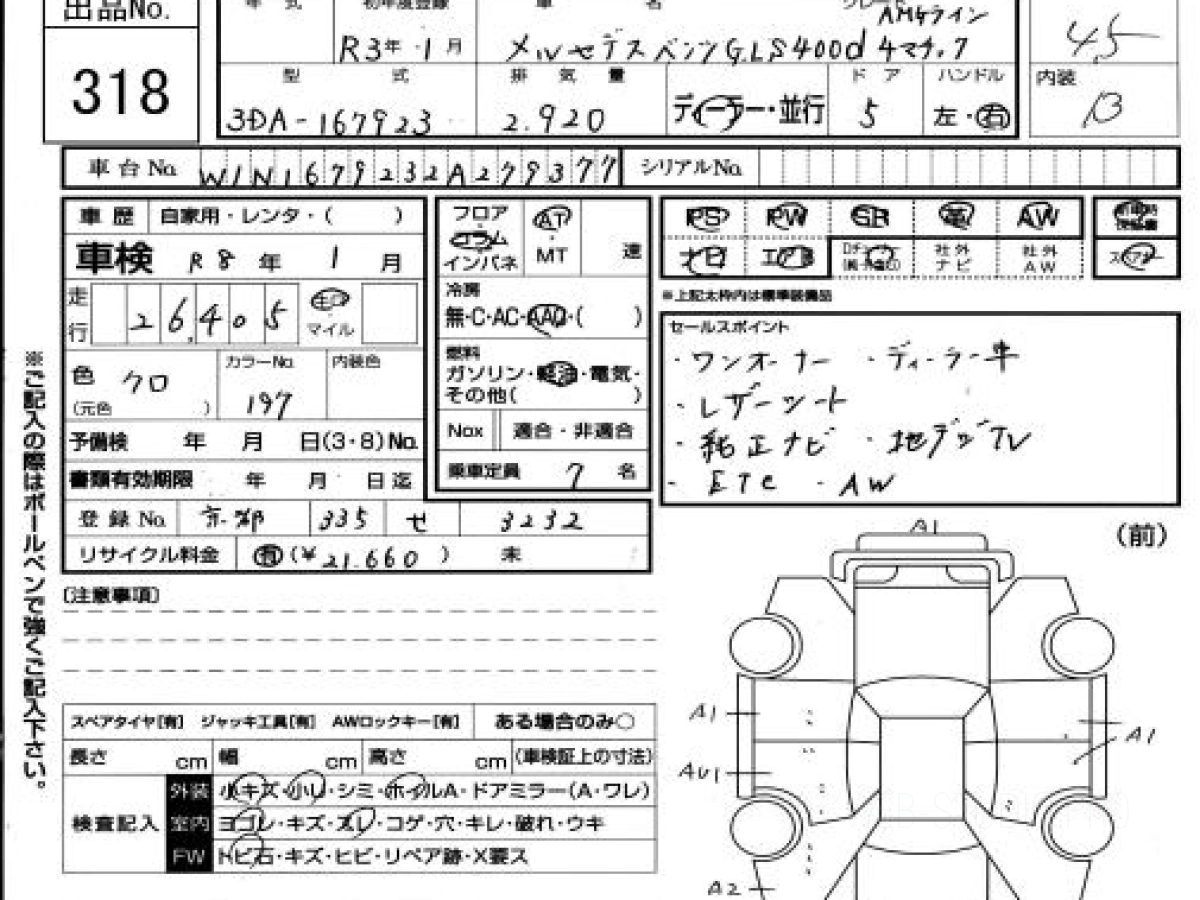 出品No.
318
年 式
初年度登録
車 名
グレード
AMGライン
R3年 1月
メルセデスベンツ GLS400d 4マチック
4.5
型 式
排気量
ドア
ハンドル
内装
3DA-167923
2.920
ディーラー・並行
5
左・右
B
車台No.
W1N1679232A279377
シリアルNo.
車歴 自家用・レンタ・( )
車検 R8年 1月
走行 26,405 キロ マイル
色 クロ
(元色 )
カラーNo. 197
内装色
予備検 年 月 日(3・8)No.
書類有効期限 年 月 日迄
登録No. 京都 335 せ 3232
リサイクル料金 有(¥21.660) 未
フロア
コラム
インパネ
AT
MT
速
冷房
無・C・AC・AAC・( )
燃料
ガソリン・軽油・電気・
その他( )
Nox 適合・非適合
乗車定員 7 名
PS PW SR 革 AW
ナビ エアB
社外ナビ
社外AW
※上記太枠内は標準装備品
セールスポイント
・ワンオーナー ・ディーラー車
・レザーシート
・純正ナビ ・地デジTV
・ETC ・AW
※ご記入の際はボールペンで強くご記入下さい。
(注意事項)
(前)
A1
A1
AU1
A1
A2
スペアタイヤ[有] ジャッキ工具[有] AWロックキー[有] ある場合のみ○
長さ cm 幅 cm 高さ cm (車検証上の寸法)
検査記入
外装 小キズ・小凹・シミ・ホイルA・ドアミラー(A・ワレ)
室内 ヨゴレ・キズ・スレ・コゲ・穴・キレ・破れ・ウキ
FW トビ石・キズ・ヒビ・リペア跡・X要ス